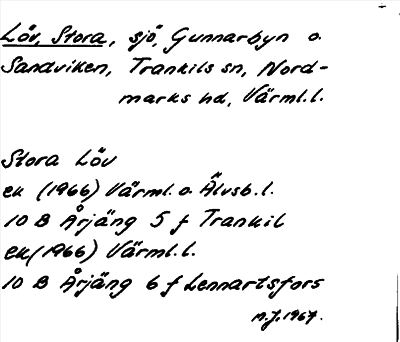 Löv, Stora, sjö, Gunnarbyn o.
Sandviken, Trankils sn, Nord-
marks hd, Värml.l.
Stora Löv
ek (1966) Värml. o. Älvsb.l.
10 B Årjäng 5 f Trankil
ek (1966) Värml.l.
10 B Årjäng 6 f Lennartsfors
N.J. 1967.